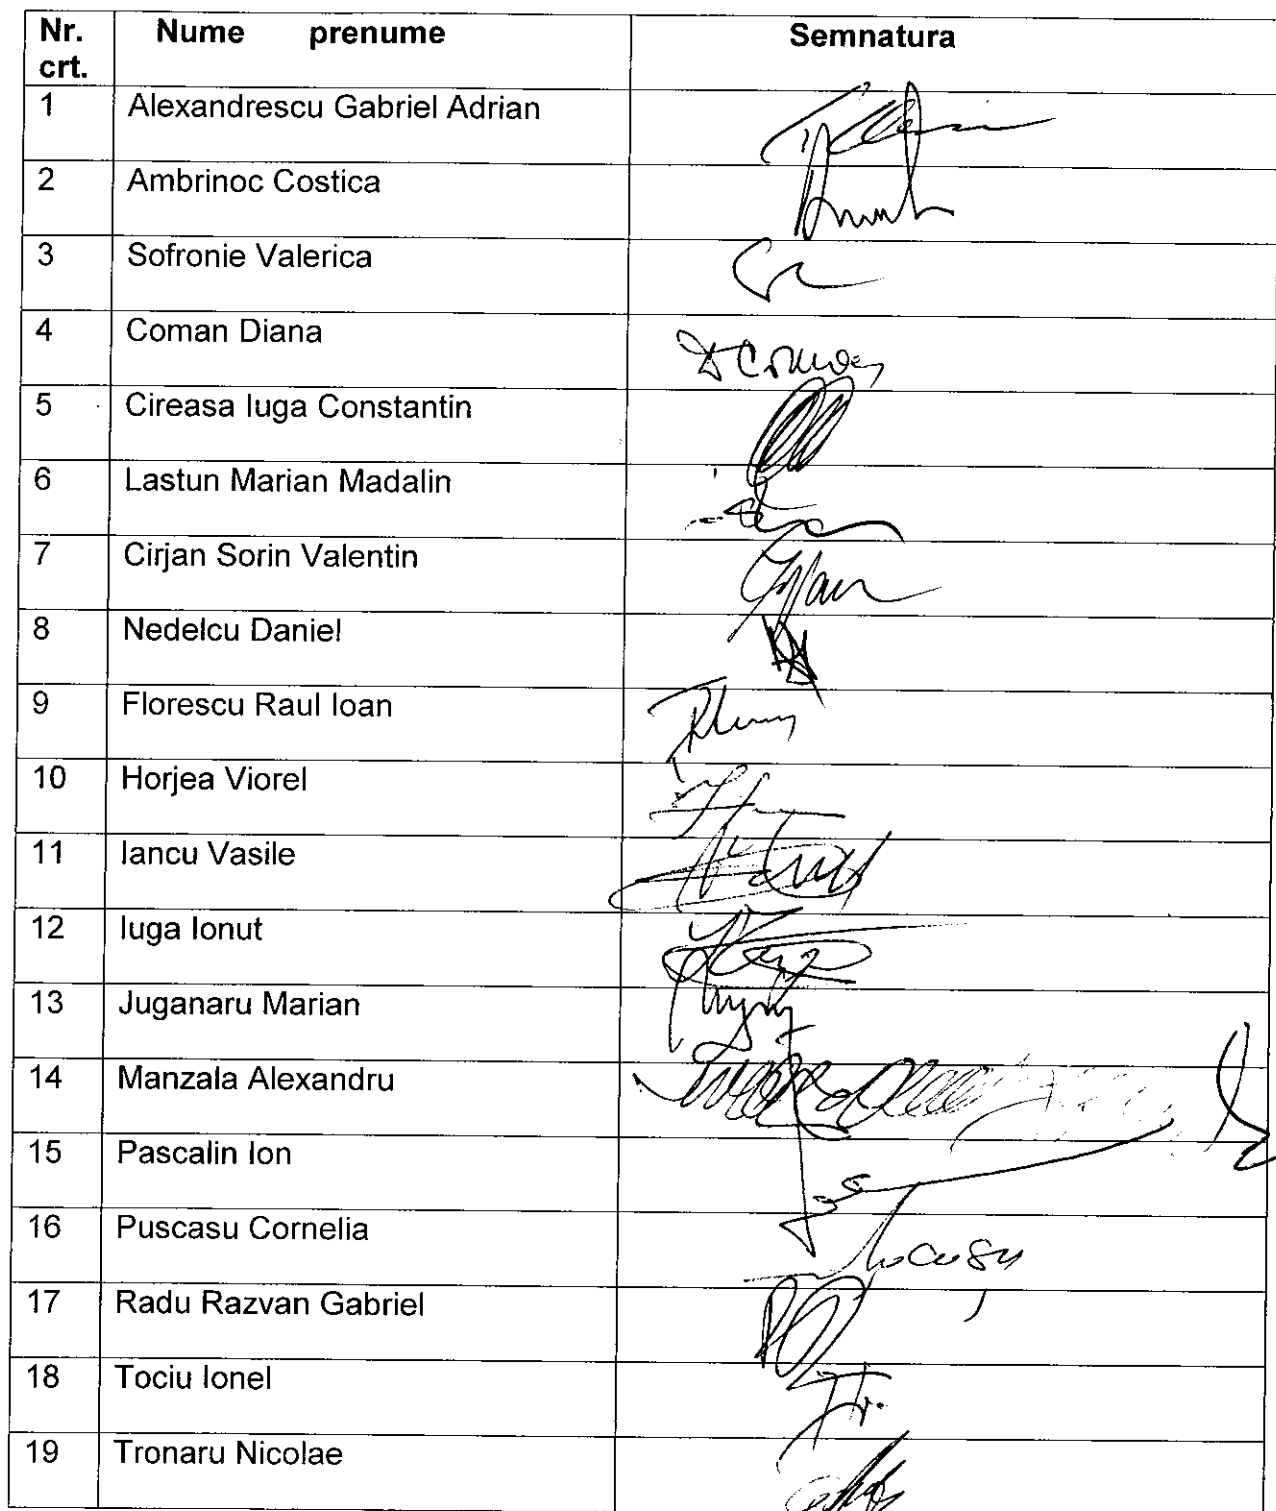 Nr. crt. Nume prenume Semnatura
1 Alexandrescu Gabriel Adrian
2 Ambrinoc Costica
3 Sofronie Valerica
4 Coman Diana D Coman
5 Cireasa Iuga Constantin
6 Lastun Marian Madalin
7 Cirjan Sorin Valentin
8 Nedelcu Daniel
9 Florescu Raul Ioan
10 Horjea Viorel
11 Iancu Vasile
12 Iuga Ionut
13 Juganaru Marian
14 Manzala Alexandru
15 Pascalin Ion
16 Puscasu Cornelia
17 Radu Razvan Gabriel
18 Tociu Ionel
19 Tronaru Nicolae